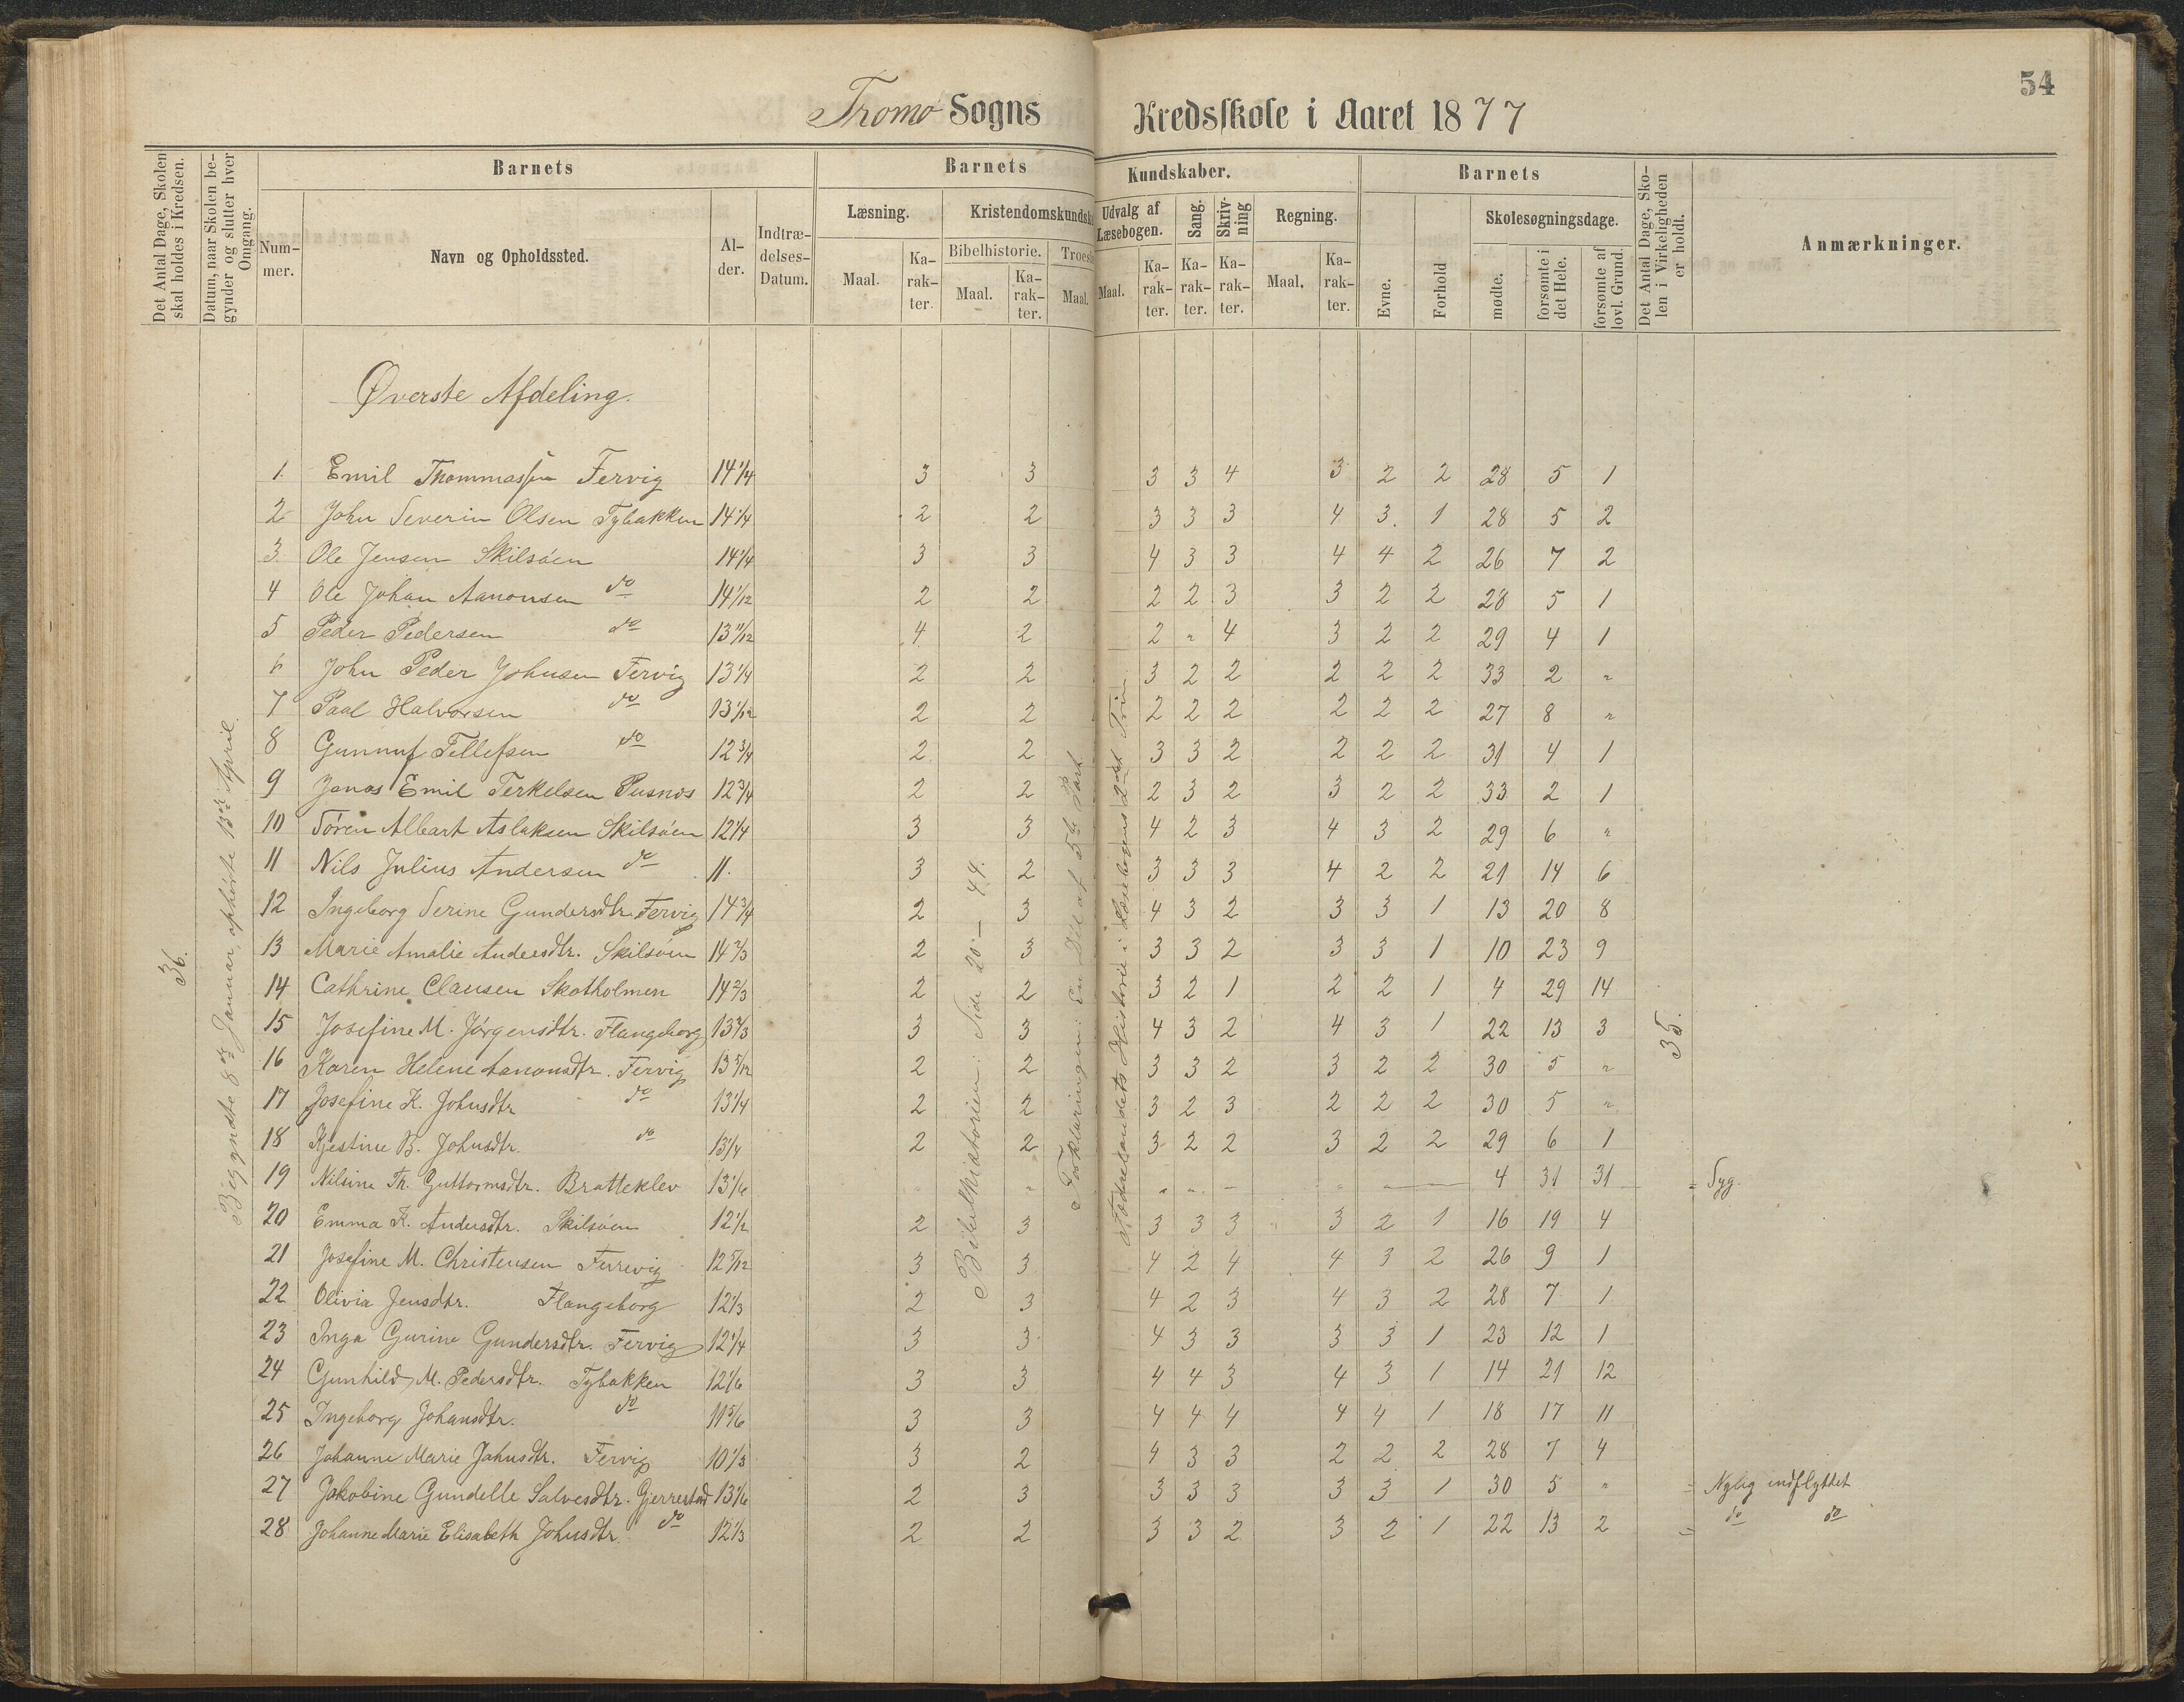 54
Tromø Sogns Kredsskole i Aaret 1877
Det Antal Dage, Skolen skal holdes i Kredsen.
Datum, naar Skolen begynder og slutter hver Omgang.
Barnets
Nummer.
Navn og Opholdssted.
Alder.
Indtrædelses-Datum.
Barnets Kundskaber.
Læsning.
Maal.
Karakter.
Kristendomskundsk
Bibelhistorie.
Maal.
Karakter.
Troes
Maal.
Udvalg af Læsebogen.
Maal.
Karakter.
Sang.
Karakter.
Skrivning
Karakter.
Regning.
Maal.
Karakter.
Barnets
Evne.
Forhold
Skolesøgningsdage.
mødte.
forsømte i det Hele.
forsømte af lovl. Grund.
Det Antal Dage, Skolen i Virkeligheden er holdt.
Anmærkninger.
Øverste Afdeling.
36.
Begyndte 8de Januar, ophørte 13de April.
Bibelhistorien: Side 20 — 44.
Forklaringen: En Del af 5te Part
Fædrelandets Historie i Læsebogens 2det Trin.
35.
1. Emil Thommassen Fervig 14 1/4 3 3 3 3 4 3 2 2 28 5 1
2 John Severin Olsen Tybakken 14 1/4 2 2 3 3 3 4 3. 1 28 5 2
3. Ole Jensen Skilsöen 14 1/4 3 3 4 3 3 4 4 2 26 7 2
4 Ole Johan Aanonsen do 14 1/12 2 2 2 2 3 3 2 2 28 5 1
5 Peder Pedersen do 13 11/12 4 2 2 " 4 3 2 2 29 4 1
6 John Peder Johnsen Fervig 13 1/4 2 2 3 2 2 2 2 2 33 2 "
7 Paal Halvorsen do 13 1/12 2 2 2 2 2 2 2 2 27 8 "
8 Gunnuf Tellefsen do 12 3/4 2 2 3 3 2 2 2 2 31 4 1
9 Jonas Emil Terkelsen Pusnes 12 3/4 2 2 2 3 2 3 2 2 33 2 1
10 Sören Albart Aslaksen Skilsöen 12 1/4 3 3 4 2 3 4 3 2 29 6 "
11 Nils Julius Andersen do 11. 3 2 3 3 3 4 2 2 21 14 6
12 Ingeborg Serine Gundersdtr. Fervig 14 3/4 2 3 4 3 2 3 3 1 13 20 8
13 Marie Amalie Andersdtr. Skilsöen 14 2/3 2 3 3 3 2 3 3 1 10 23 9
14 Cathrine Clausen Skotholmen 14 2/3 2 2 3 2 1 2 2 1 4 29 14
15 Josefine M. Jörgensdtr. Flangeborg 13 2/3 3 3 4 3 2 4 3 1 22 13 3
16 Karen Helene Aanonsdtr. Fervig 13 5/12 2 2 3 3 2 3 2 2 30 5 "
17 Josefine K. Johnsdtr do 13 1/4 2 2 3 2 3 2 2 2 30 5 "
18 Kjestine B. Johnsdtr. do 13 1/4 2 2 3 2 2 3 2 2 29 6 1
19 Nilsine Th. Guttormsdtr. Bratteklev 13 1/6 " " " — " — 4 31 31 = Syg.
20 Emma K. Andersdtr. Skilsöen 12 1/2 2 3 3 3 3 3 2 1 16 19 4
21 Josefine M. Christensen Furevig 12 5/12 3 3 4 2 4 4 3 2 26 9 1
22 Olivia Jensdtr. Flangeborg 12 1/3 2 3 4 2 3 4 3 2 28 7 1
23 Inga Gurine Gundersdtr. Fervig 12 1/4 3 3 4 3 3 3 3 1 23 12 1
24 Gunhild M. Pedersdtr. Tybakken 12 1/6 3 3 4 4 3 4 3 1 14 21 12
25 Ingeborg Johansdtr. do 11 5/6 3 3 4 4 4 4 4 1 18 17 11
26 Johanne Marie Johnsdtr. Fervig 10 1/3 3 2 4 3 3 2 2 2 28 7 4
27 Jakobine Gundelle Salvesdtr. Gjerrestad 13 1/6 2 3 3 3 3 3 3 1 30 5 " = Nylig indflyttet
28 Johanne Marie Elisabeth Johnsdtr do 12 1/3 2 2 3 3 2 3 2 1 22 13 2 = do do